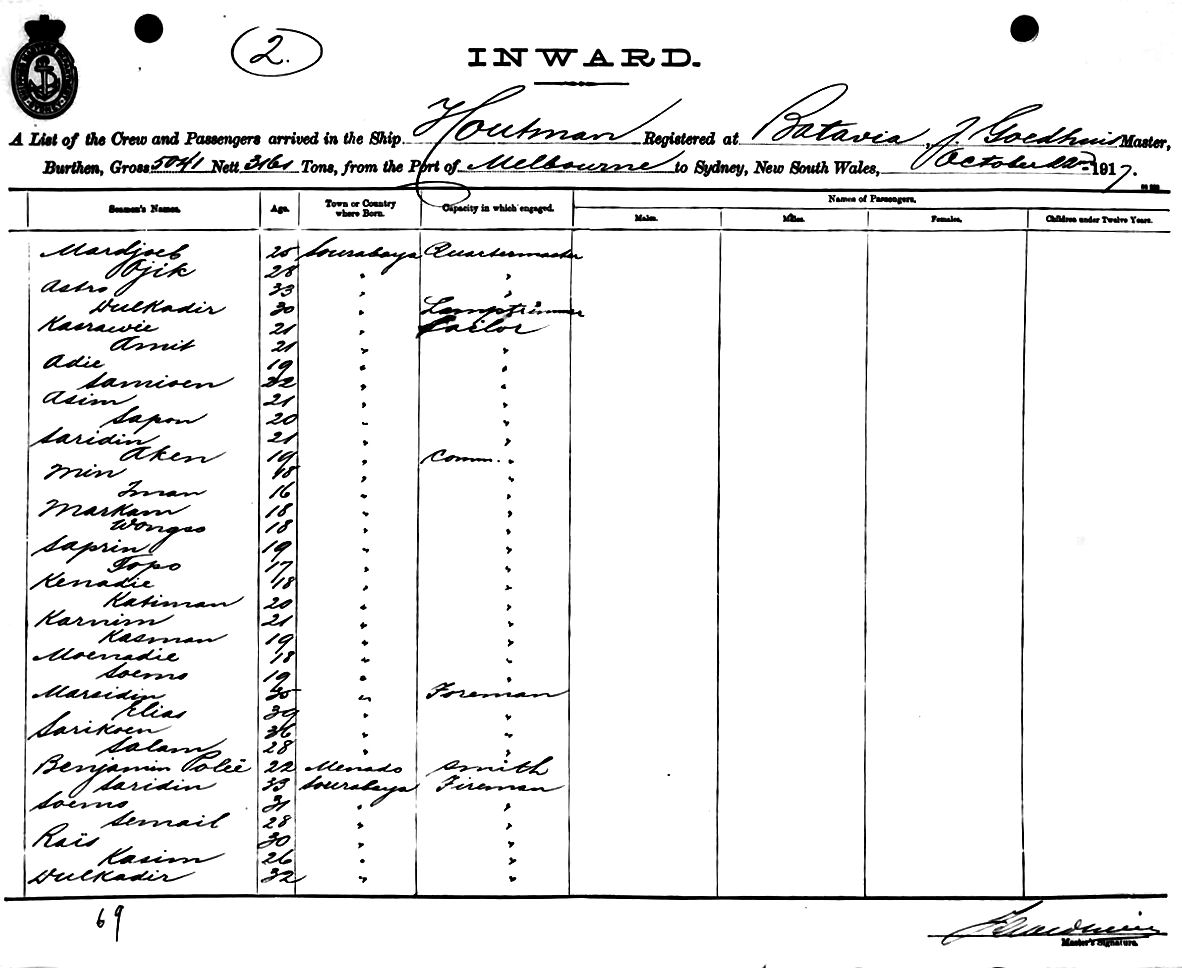 2.
INWARD.
A List of the Crew and Passengers arrived in the Ship Houtman Registered at Batavia, J. Goedhuis Master,
Burthen, Gross 5041 Nett 3161 Tons, from the Port of Melbourne to Sydney, New South Wales, October 1917.
Seamen's Names. Age. Town or Country where Born. Capacity in which engaged. Names of Passengers.
Males. Males. Females. Children under Twelve Years.
Mardjoeb 25 Sourabaya Quartermaster
Ojik 28 " "
Astro 33 " "
Dulkadir 30 " Lamptrimmer
Kasrawie 21 " Sailor
Amit 21 " "
Adie 19 " "
Samioen 22 " "
Asim 21 " "
Sapon 20 " "
Saridin 21 " "
Aken 19 " Comm. "
Min 18 " "
Iman 16 " "
Markam 18 " "
Wongso 18 " "
Saprin 19 " "
Topo 17 " "
Kenadie 18 " "
Katiman 20 " "
Karnim 21 " "
Kasman 19 " "
Moenadie 18 " "
Soemo 19 " "
Marsidin 35 " Foreman
Elias 39 " "
Sarikoen 36 " "
Salam 28 " "
Benjamin Poleë 22 Menado Smith
Saridin 33 Sourabaya Fireman
Soemo 31 " "
Semail 28 " "
Raïs 30 " "
Kasim 26 " "
Dulkadir 32 " "
69
J Goedhuis
Master's Signature.